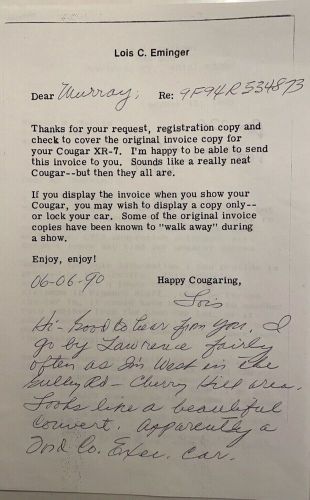 Lois C. Eminger
Dear Murray; Re: 9F94R534873
Thanks for your request, registration copy and
check to cover the original invoice copy for
your Cougar XR-7. I'm happy to be able to send
this invoice to you. Sounds like a really neat
Cougar--but then they all are.
If you display the invoice when you show your
Cougar, you may wish to display a copy only--
or lock your car. Some of the original invoice
copies have been known to "walk away" during
a show.
Enjoy, enjoy!
06-06-90 Happy Cougaring,
Lois
Hi - Good to hear from you. I
go by Lawrence fairly
often as I'm West in the
Gulley Rd - Cherry Hill area.
Looks like a beautiful
convert. Apparently a
Ford Co. Exec. car.